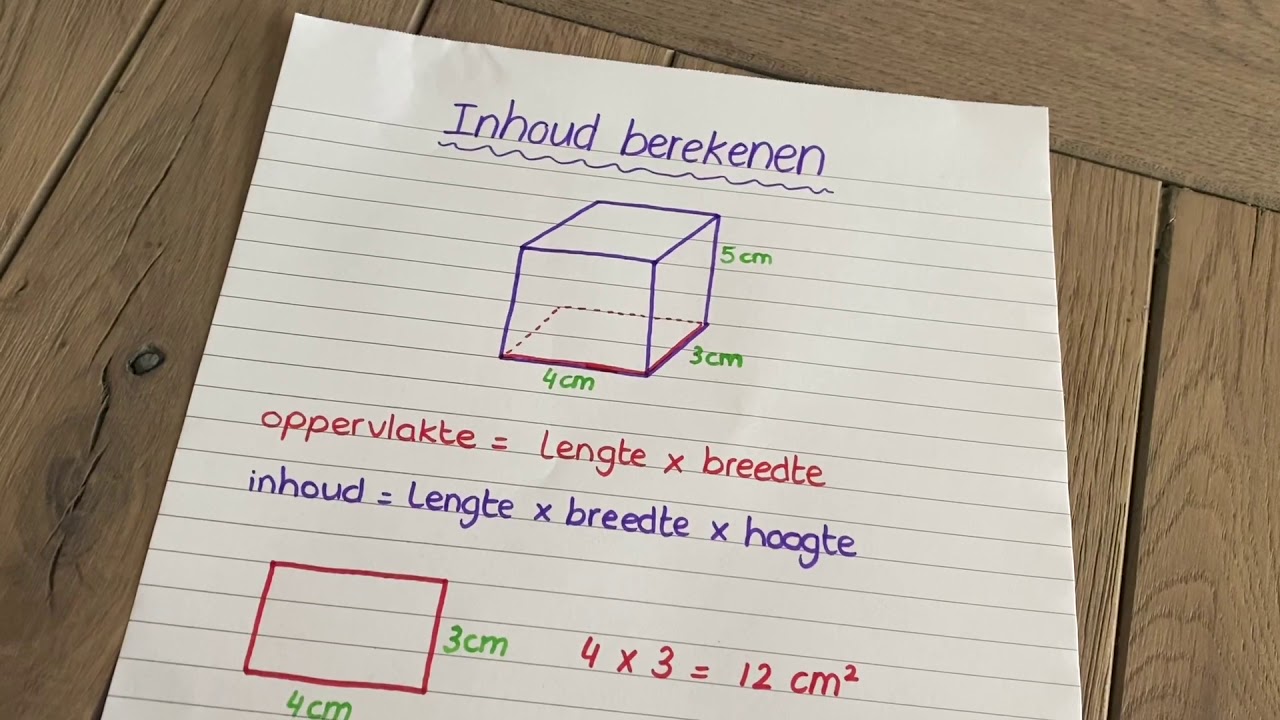 Inhoud berekenen
5cm
3cm
4cm
oppervlakte = lengte x breedte
inhoud = Lengte x breedte x hoogte
3cm
4 x 3 = 12 cm²
4cm